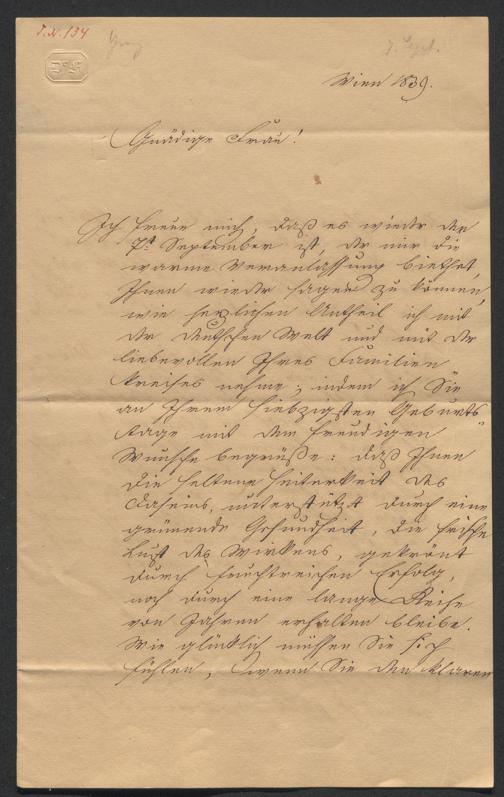 J.N. 134
Wien 1839.
Gnädige Frau!
Ich freue mich, daß es wieder der
7te September ist, der mir die
warme Veranlassung biethet,
Ihnen wieder sagen zu können,
wie herzlichen Antheil ich mit
der deutschen Welt und mit der
liebevollen Ihres Familien
kreises nehme; indem ich Sie
an Ihrem siebzigsten Geburts
tage mit dem freudigen
Wunsche begrüße: daß Ihnen
die seltene Heiterkeit des
Daseins, unterstützt durch eine
grünende Gesundheit, die frische
Lust des Wirkens, gekrönt
durch fruchtreichen Erfolg,
noch durch eine lange Reihe
von Jahren erhalten bleibe.
Wie glücklich müssen Sie sich
fühlen, wenn Sie den klaren